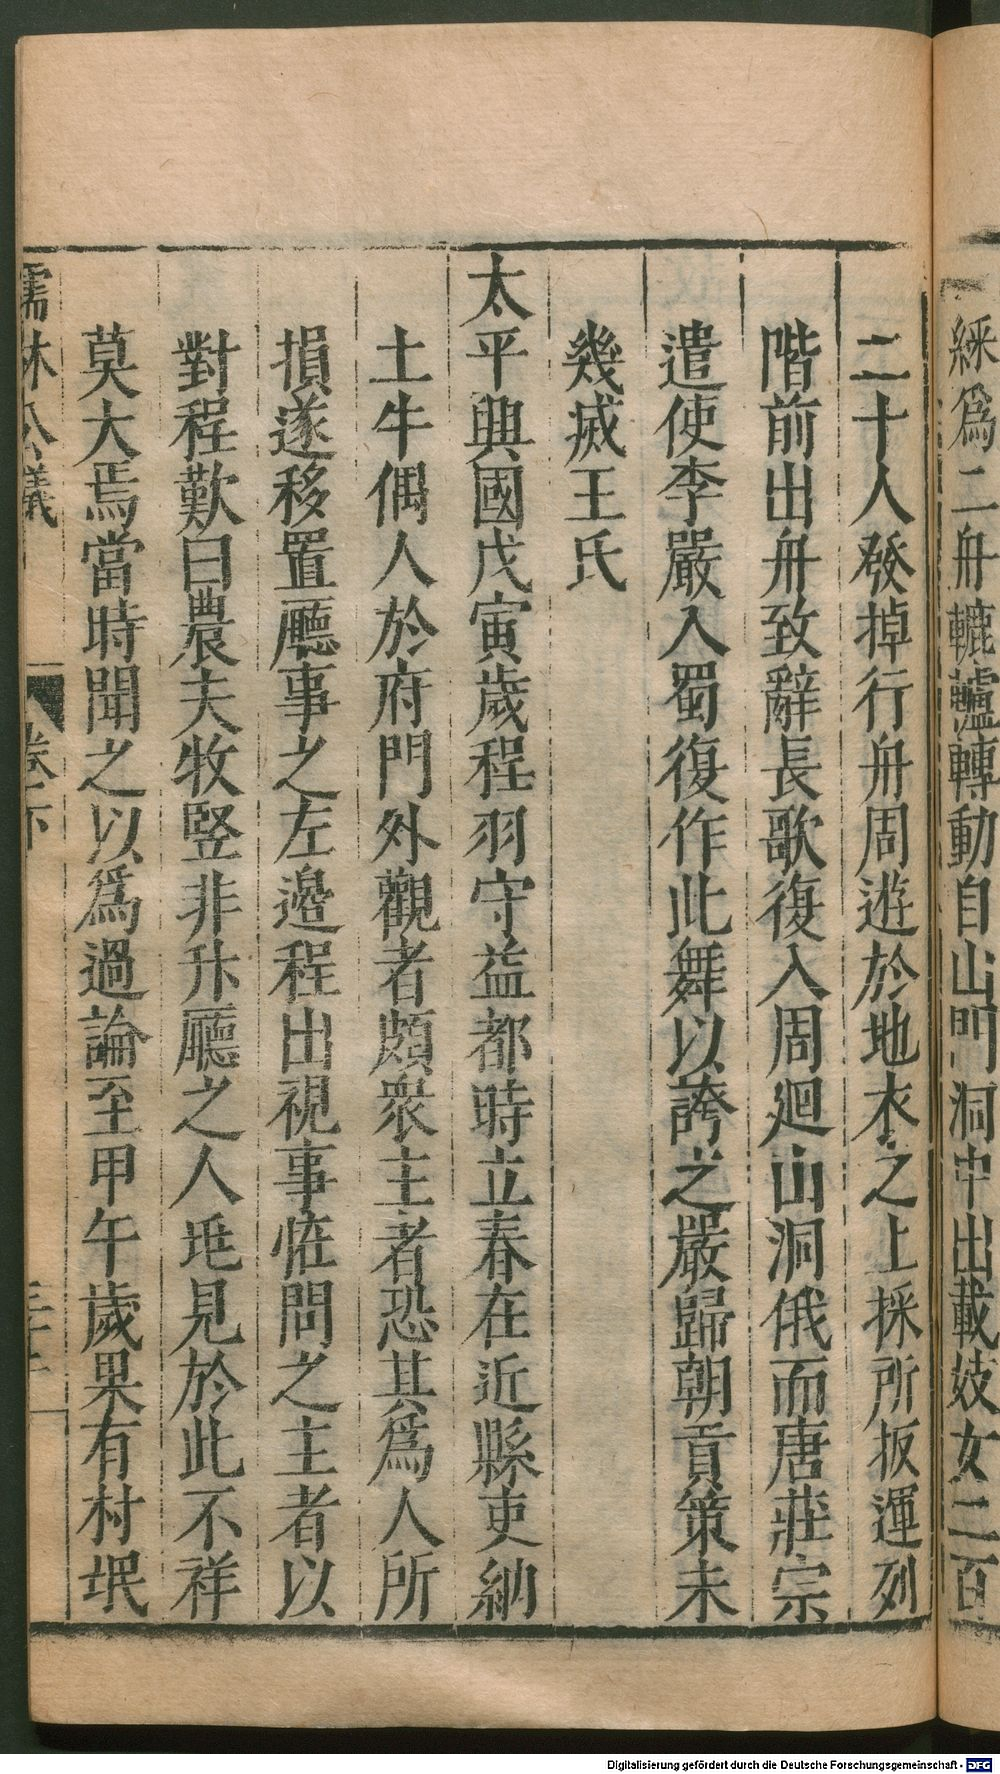 綵爲二舟轆轤轉動自山門洞中出載妓女二百
二十人發掉行舟周遊於地衣之上採所扳運列
階前出舟致辭長歌復入周廻山洞俄而唐莊宗
遣使李嚴入蜀復作此舞以誇之嚴歸朝貢策未
幾滅王氏
太平興國戊寅歲程羽守益都時立春在近縣吏納
土牛偶人於府門外觀者頗衆主者恐其爲人所
損遂移置廳事之左邊程出視事怪問之主者以
對程歎曰農夫牧竪非升廳之人兆見於此不祥
莫大焉當時聞之以爲過論至甲午歲果有村氓
儒林公議
卷下
Digitalisierung gefördert durch die Deutsche Forschungsgemeinschaft - DFG